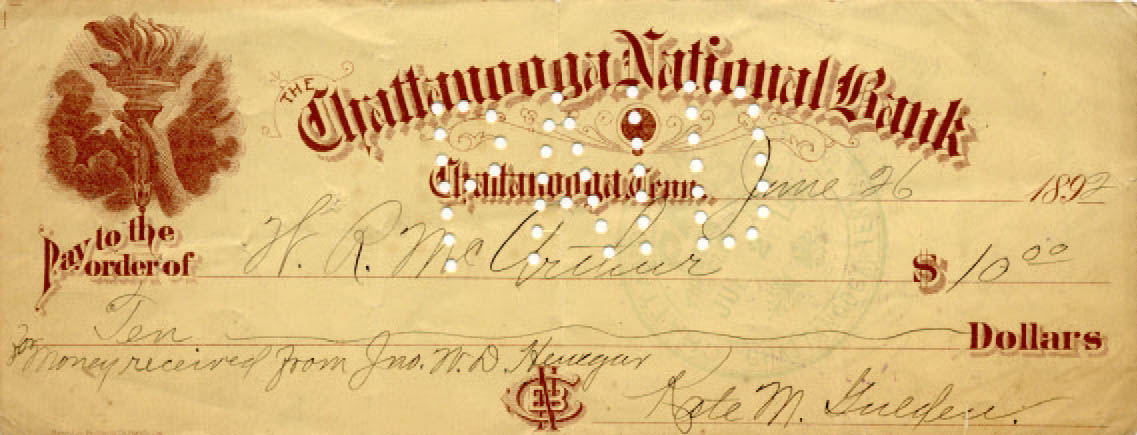 THE
Chattanooga National Bank
Chattanooga, Tenn. June 26 1892
Pay to the order of W. R. McArthur $ 10 00
Ten Dollars
for Money received from Jno. W. D. Henegar
CNB
Kate M. Gulden.
PAID